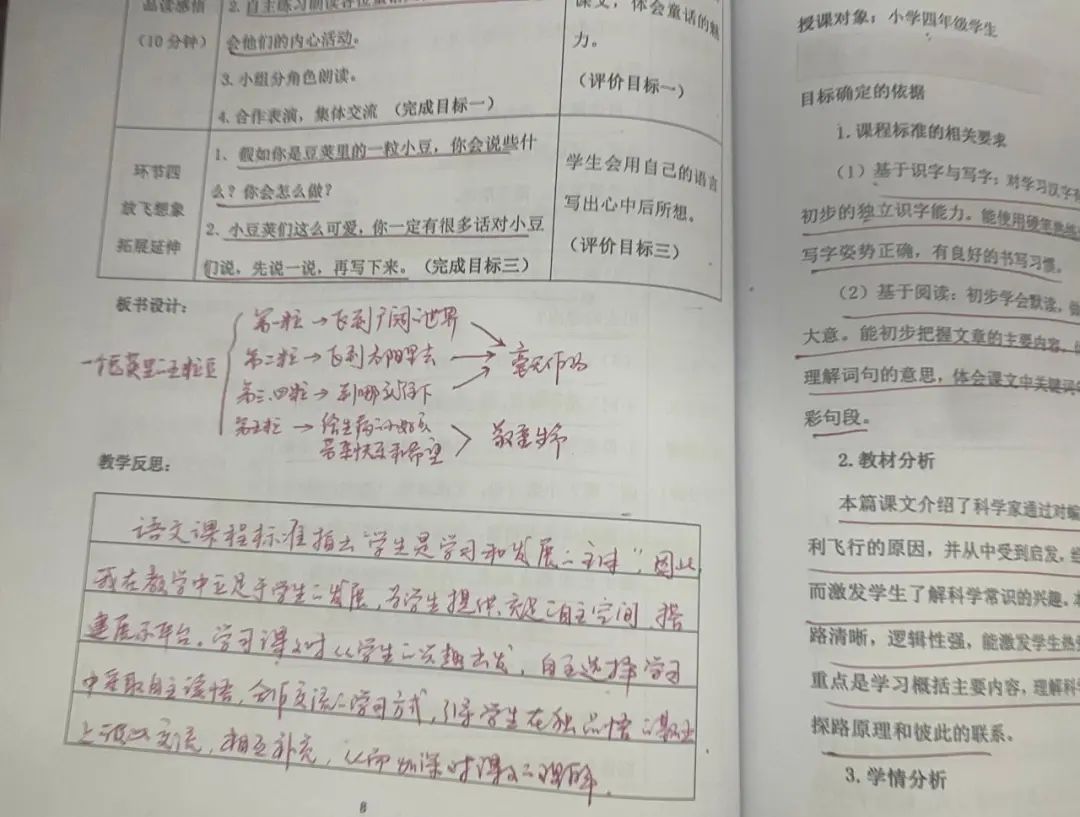 品读感悟
(10 分钟)
2. 自主练习朗读各位童话
会他们的内心活动。
3. 小组分角色朗读。
4. 合作表演，集体交流 (完成目标一)
课文，体会童话的魅
力。
(评价目标一)
环节四
放飞想象
拓展延伸
1、假如你是豆荚里的一粒小豆，你会说些什
么？你会怎么做？
2、小豆荚们这么可爱，你一定有很多话对小豆
们说，先说一说，再写下来。(完成目标三)
学生会用自己的语言
写出心中后所想。
(评价目标三)
板书设计：
一个豆荚里的五粒豆
第一粒 → 飞到广阔的世界
第二粒 → 飞到太阳里去
第三、四粒 → 到哪
第五粒 → 给生病的小女孩
带来快乐和希望
敬重生命
教学反思：
语文课程标准指出“学生是学习和发展的主体”因此
我在教学中立足于学生的发展，为学生提供充足的自主空间 搭
建展示平台。学习课文时从学生的兴趣出发，自主选择学习
中采取自主读悟，合作交流的学习方式，引导学生在独品悟的基础
上 交流，相互补充，从而加深对课文的理解。
8
授课对象：小学四年级学生
目标确定的依据
1. 课程标准的相关要求
(1) 基于识字与写字：对学习汉字有
初步的独立识字能力。能使用硬笔熟练
写字姿势正确，有良好的书写习惯。
(2) 基于阅读：初步学会默读，做
大意。能初步把握文章的主要内容，
理解词句的意思，体会课文中关键词句
彩句段。
2. 教材分析
本篇课文介绍了科学家通过对蝙
利飞行的原因，并从中受到启发，
而激发学生了解科学常识的兴趣。本
路清晰，逻辑性强，能激发学生热
重点是学习概括主要内容，理解科学
探路原理和彼此的联系。
3. 学情分析